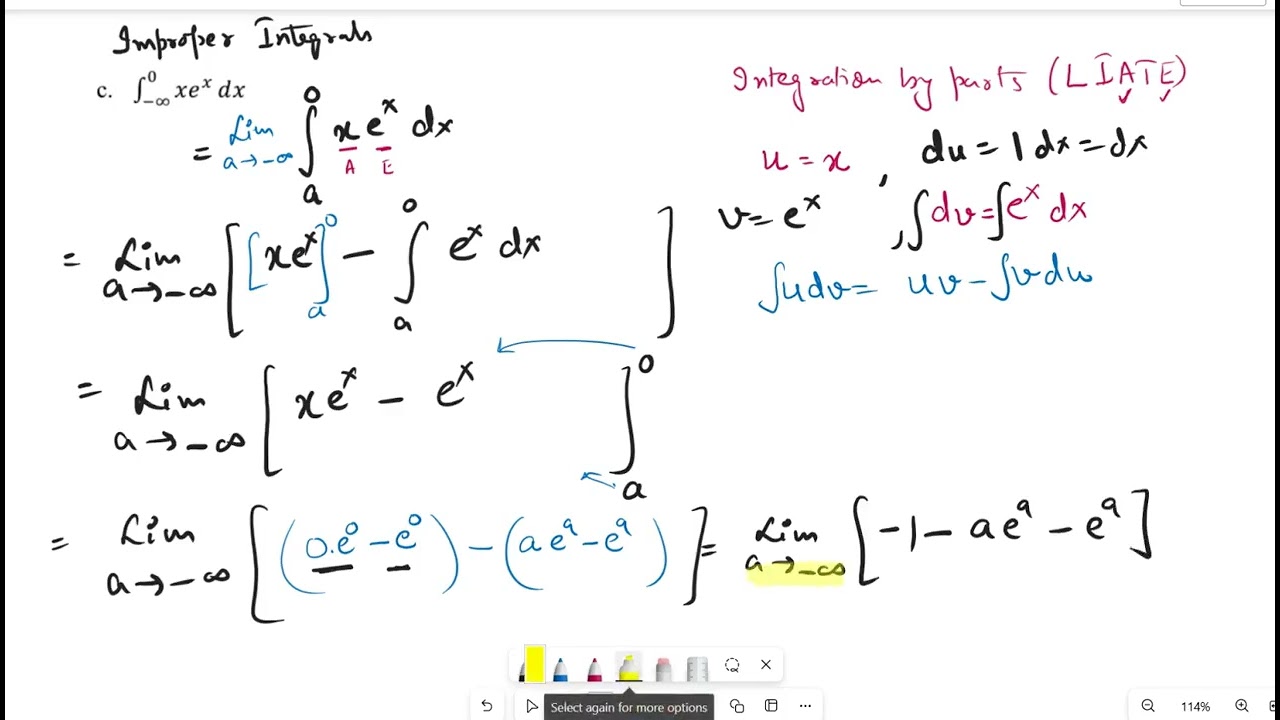 Improper Integrals
c. ∫₋∞⁰ xeˣ dx
= Lim a→-∞ ∫ₐ⁰ x eˣ dx
A E
Integration by parts (LIATE)
u = x , du = 1 dx = dx
v = eˣ , ∫dv = ∫eˣ dx
∫u dv = uv - ∫v du
= Lim a→-∞ [ [xeˣ]ₐ⁰ - ∫ₐ⁰ eˣ dx ]
= Lim a→-∞ [ xeˣ - eˣ ]ₐ⁰
= Lim a→-∞ [ (0.e⁰ - e⁰) - (aeᵃ - eᵃ) ] = Lim a→-∞ [ -1 - aeᵃ - eᵃ ]
Select again for more options
114%